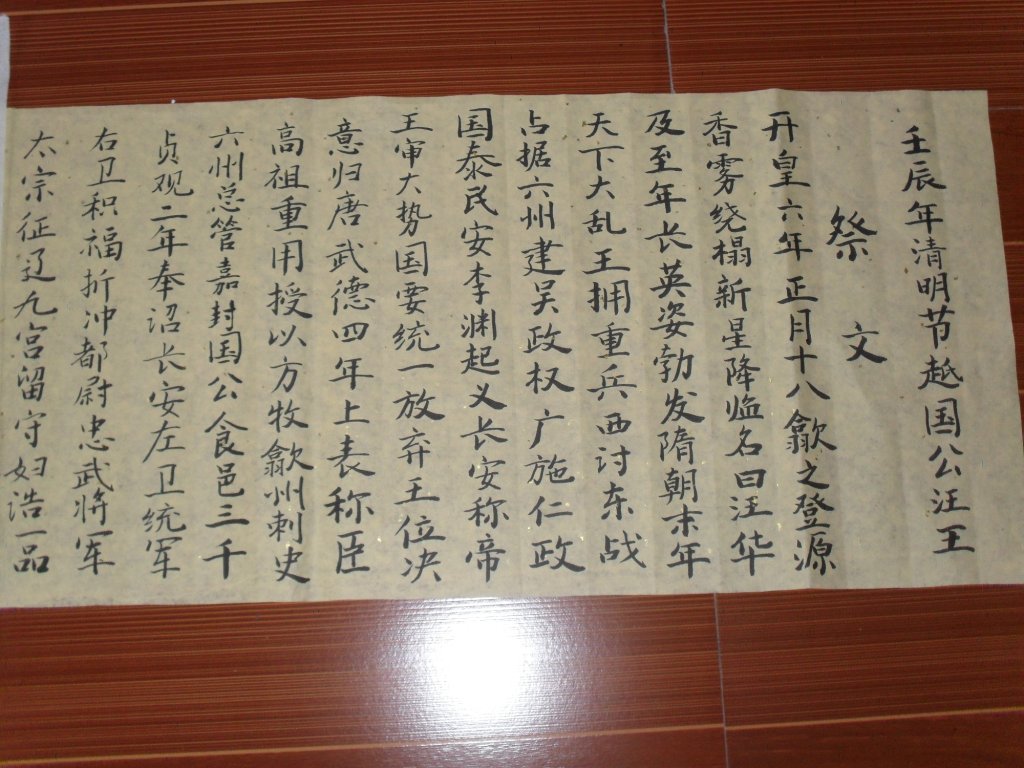 壬辰年清明节越国公汪王
祭文
开皇六年正月十八歙之登源
香雾绕榻新星降临名曰汪华
及至年长英姿勃发隋朝末年
天下大乱王拥重兵西讨东战
占据六州建吴政权广施仁政
国泰民安李渊起义长安称帝
王审大势国要统一放弃王位决
意归唐武德四年上表称臣
高祖重用授以方牧歙州刺史
六州总管嘉封国公食邑三千
贞观二年奉诏长安左卫统军
右卫积福折冲都尉忠武将军
太宗征辽九宫留守妇浩一品